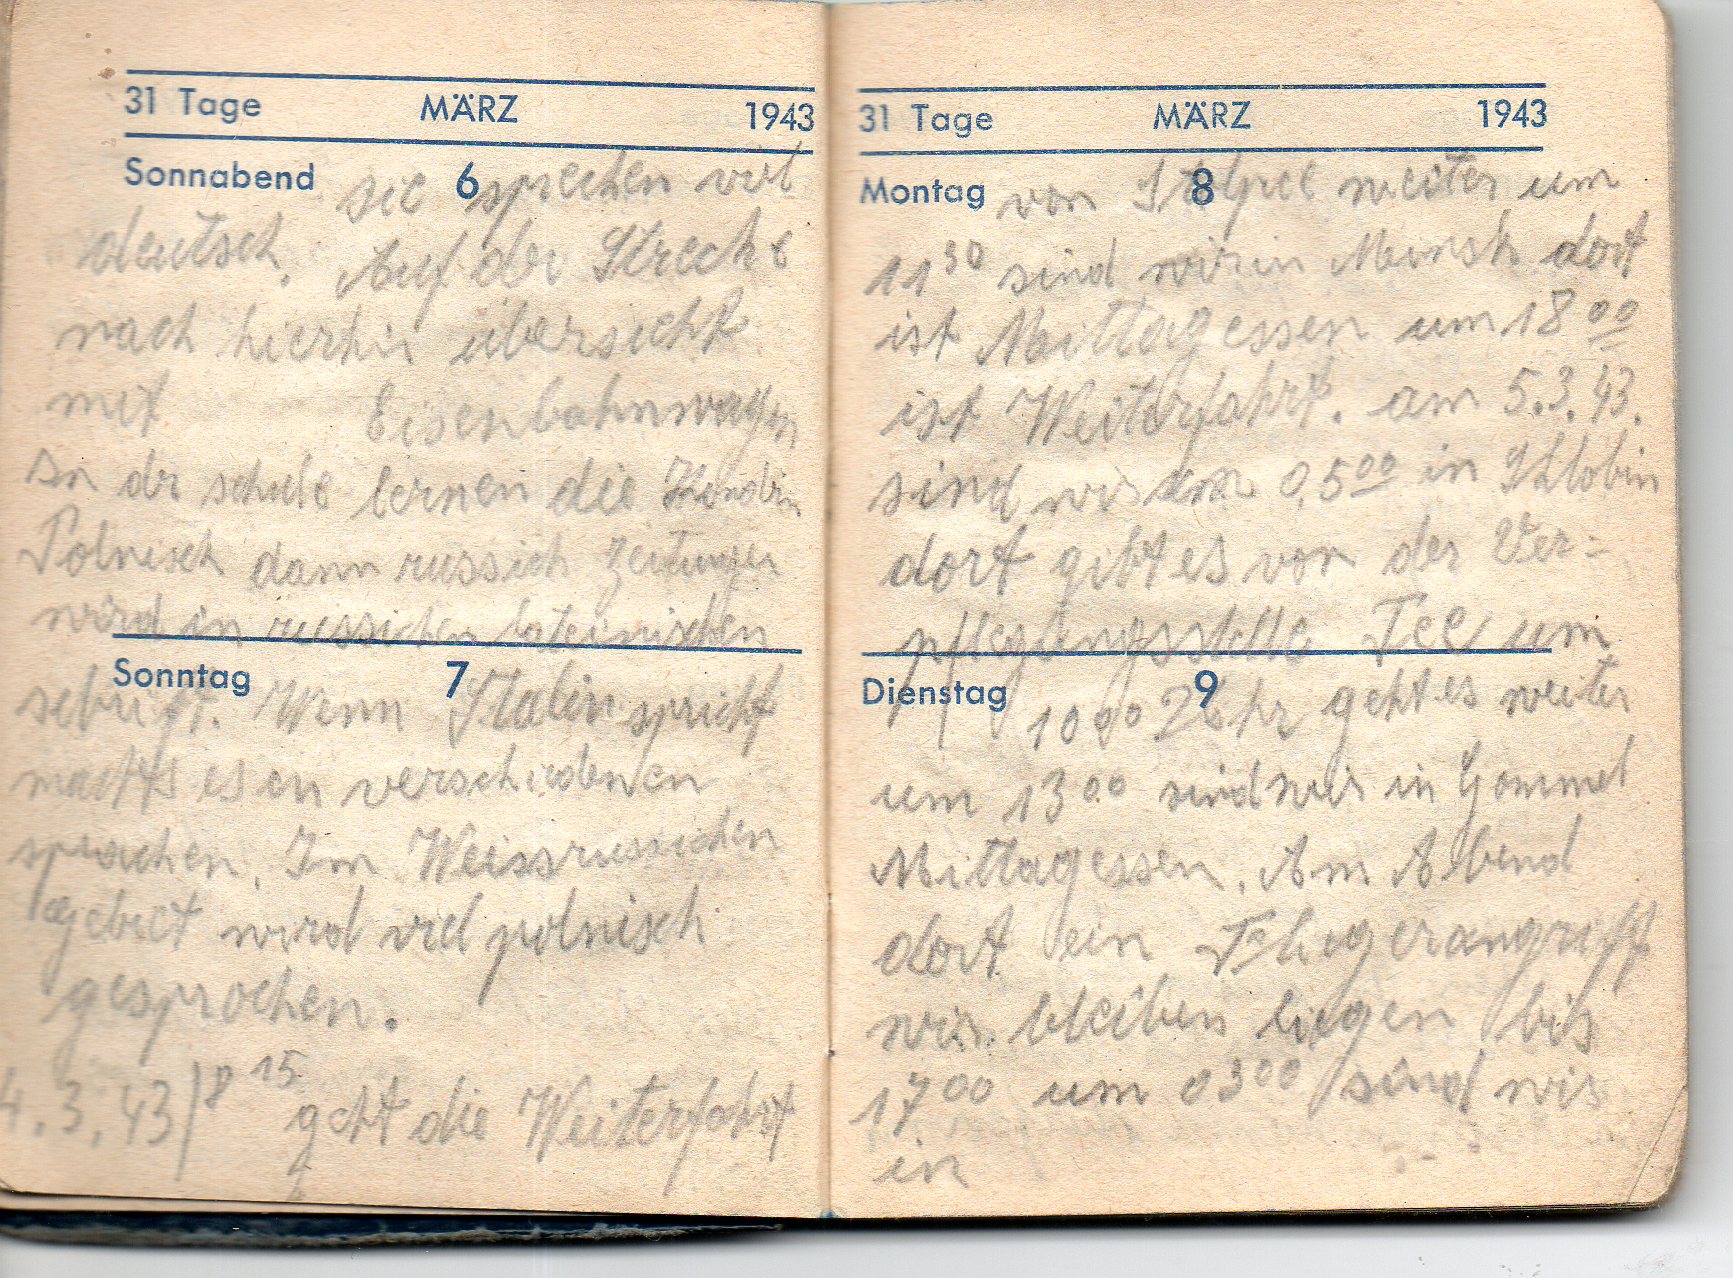 31 Tage MÄRZ 1943
Sonnabend 6 sie sprechen viel
deutsch. Auf der Strecke
nach hierhin übersicht
mit Eisenbahnwagen
In dr schule lernen die Kinder
Polnisch dann russich Zeitungen
wird in russichen lateinischen
Sonntag 7
schrift. Wenn Stalin spricht
machts es in verschiedenen
sprachen. Im Weissrussichen
gebiet wird viel polnisch
gesprochen.
4.3.43/8 15 geht die Weiterfahrt
31 Tage MÄRZ 1943
Montag 8 von Stolpce weiter um
11 30 sind wir in Minsk dort
ist Mittagessen um 18 00
ist Weiterfahrt. am 5.3.43.
sind wir um 0,5 00 in Shlobin
dort gibt es von der Ver=
pflegungsstelle Tee um
Dienstag 9
10 00 Uhr geht es weiter
um 13 00 sind wir in Gommel
Mittagessen. Am Abend
dort ein Fliegerangriff
wir bleiben liegen bis
17 00 um 03 00 sind wir
in